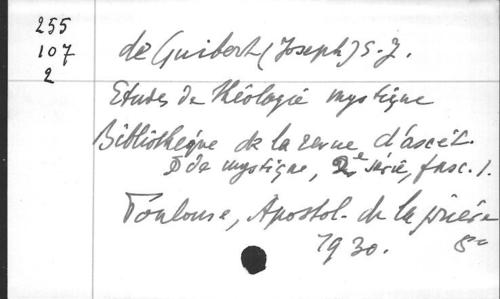 255
107
2
de Guibert (Joseph) S.J.
Etudes de théologie mystique
Bibliothèque de la revue d'ascét.
& de mystique, 2e série, fasc. 1.
Toulouse, Apostol. de la prière
1930. 8°